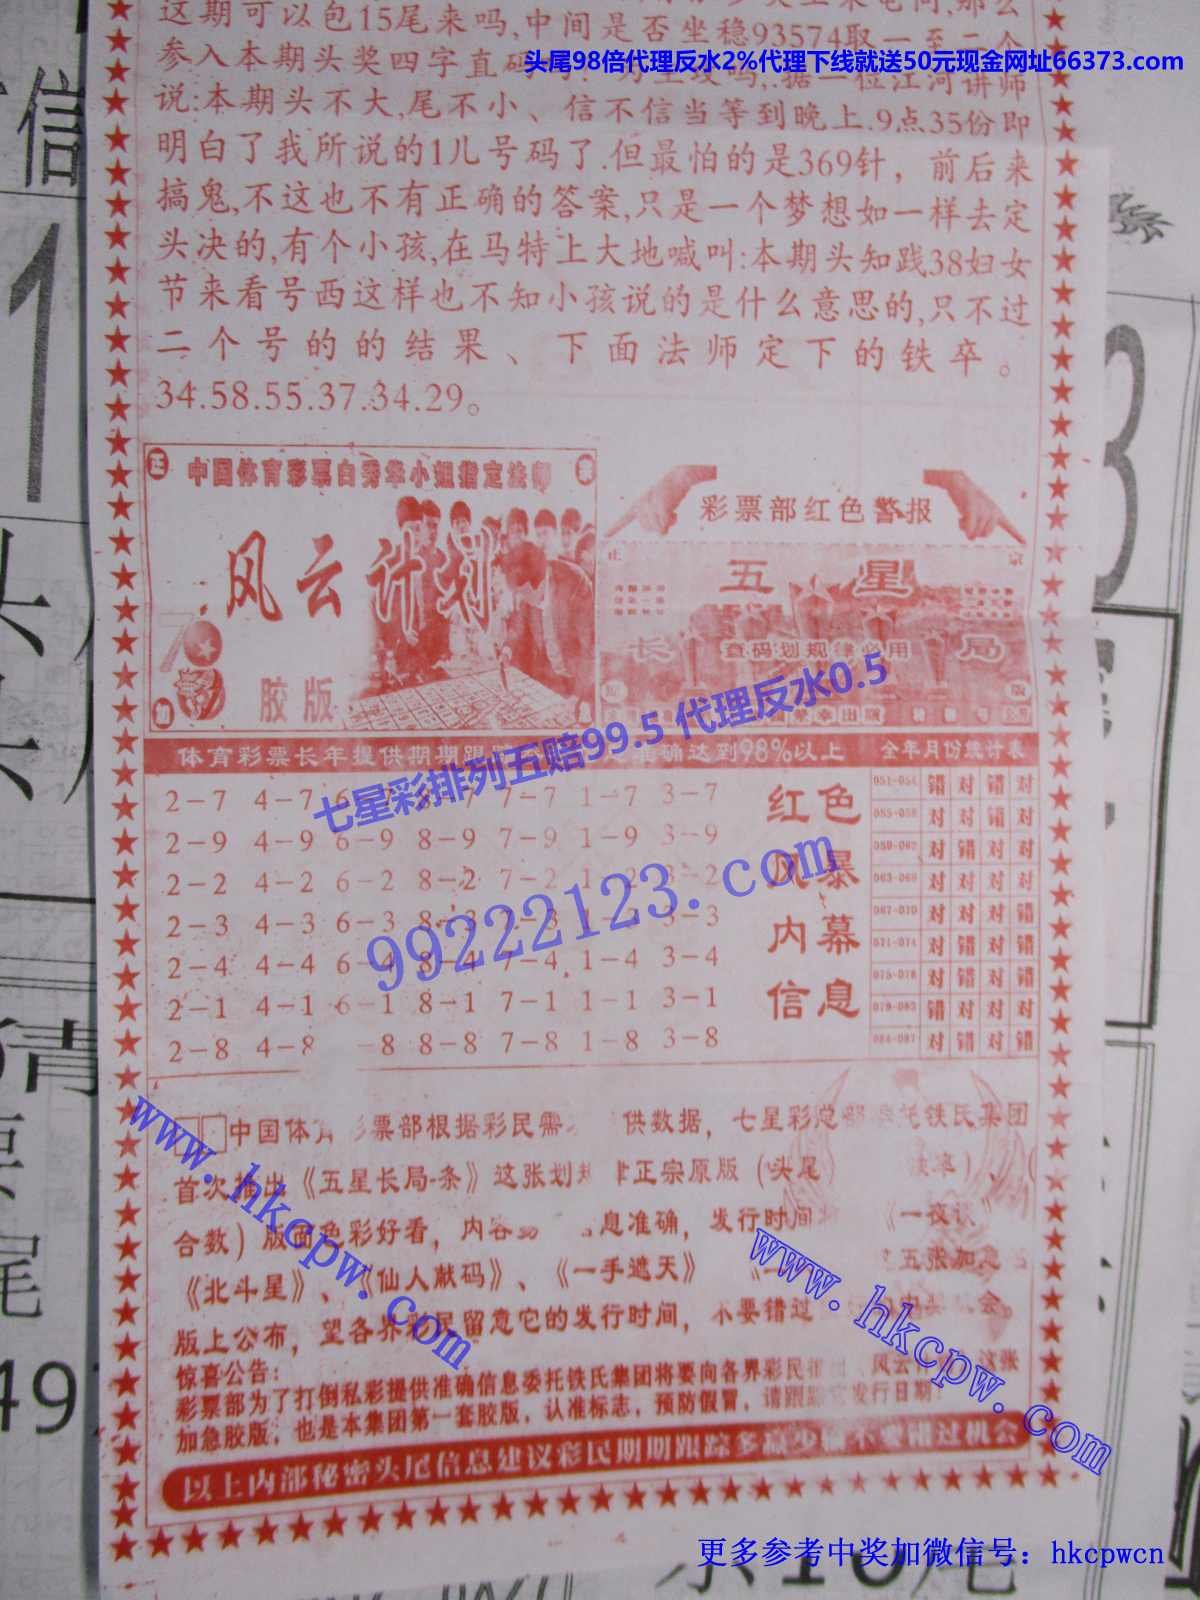 这期可以包15尾来吗,中间是否坐稳93574取一至二个
参入本期头奖四字直码
头尾98倍代理反水2%代理下线就送50元现金网址66373.com
说:本期头不大,尾不小、信不信当等到晚上.9点35份即
明白了我所说的1儿号码了.但最怕的是369针，前后来
搞鬼,不这也不有正确的答案,只是一个梦想如一样去定
头决的,有个小孩,在马特上大地喊叫:本期头知践38妇女
节来看号西这样也不知小孩说的是什么意思的,只不过
二个号的的结果、下面法师定下的铁卒。
34.58.55.37.34.29。
中国体育彩票白秀华小姐指定法师
风云计划
胶版
彩票部红色警报
正 宗
五星
长 局
查码划规律必用
版
体育彩票长年提供期期跟 准确达到98%以上 全年月份统计表
七星彩排列五赔99.5 代理反水0.5
99222123.com
2-7 4-7 6-7 8-7 7-7 1-7 3-7
2-9 4-9 6-9 8-9 7-9 1-9 3-9
2-2 4-2 6-2 8-2 7-2 1-2 3-2
2-3 4-3 6-3 8-3 7-3 1-3 3-3
2-4 4-4 6-4 8-4 7-4 1-4 3-4
2-1 4-1 6-1 8-1 7-1 1-1 3-1
2-8 4-8 -8 8-8 7-8 1-8 3-8
红色
风暴
内幕
信息
051-054 错 对 错 对
055-058 对 对 错 对
059-062 对 错 对 对
063-066 对 对 对 对
067-070 对 对 对 错
071-074 对 错 对 对
075-078 对 错 对 错
079-083 错 对 对 对
084-087 对 错 对 错
中国体育彩票部根据彩民需 供数据，七星彩总部 托铁氏集团
首次抽出《五星长局-条》这张划规律正宗原版(头尾
合数)版面色彩好看，内容 息准确，发行时间 《一夜 》
《北斗星》、《仙人献码》、《一手遮天》 五张加急
版上公布，望各界彩民留意它的发行时间，不要错过 会。
惊喜公告:
彩票部为了打倒私彩提供准确信息委托铁氏集团将要向各界彩民 风云 这张
加急胶版，也是本集团第一套胶版，认准标志，预防假冒，请跟踪 发行日期
以上内部秘密头尾信息建议彩民期期跟踪多赢少输不要错过机会
www.hkcpw.com
www.hkcpw.com
更多参考中奖加微信号：hkcpwcn